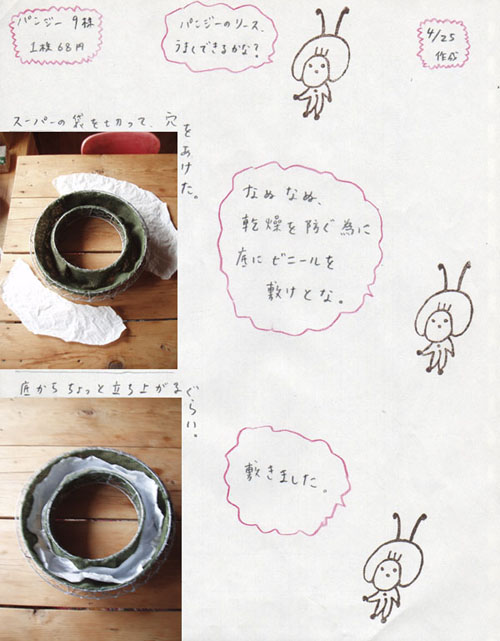 パンジー 9株
1株 68円
パンジーのリース、
うまくできるかな?
4/25
作成
スーパーの袋を切って、穴をあけた。
なぬなぬ、
乾燥を防ぐ為に
底にビニールを
敷けとな。
底からちょっと立ち上がるぐらい。
敷きました。